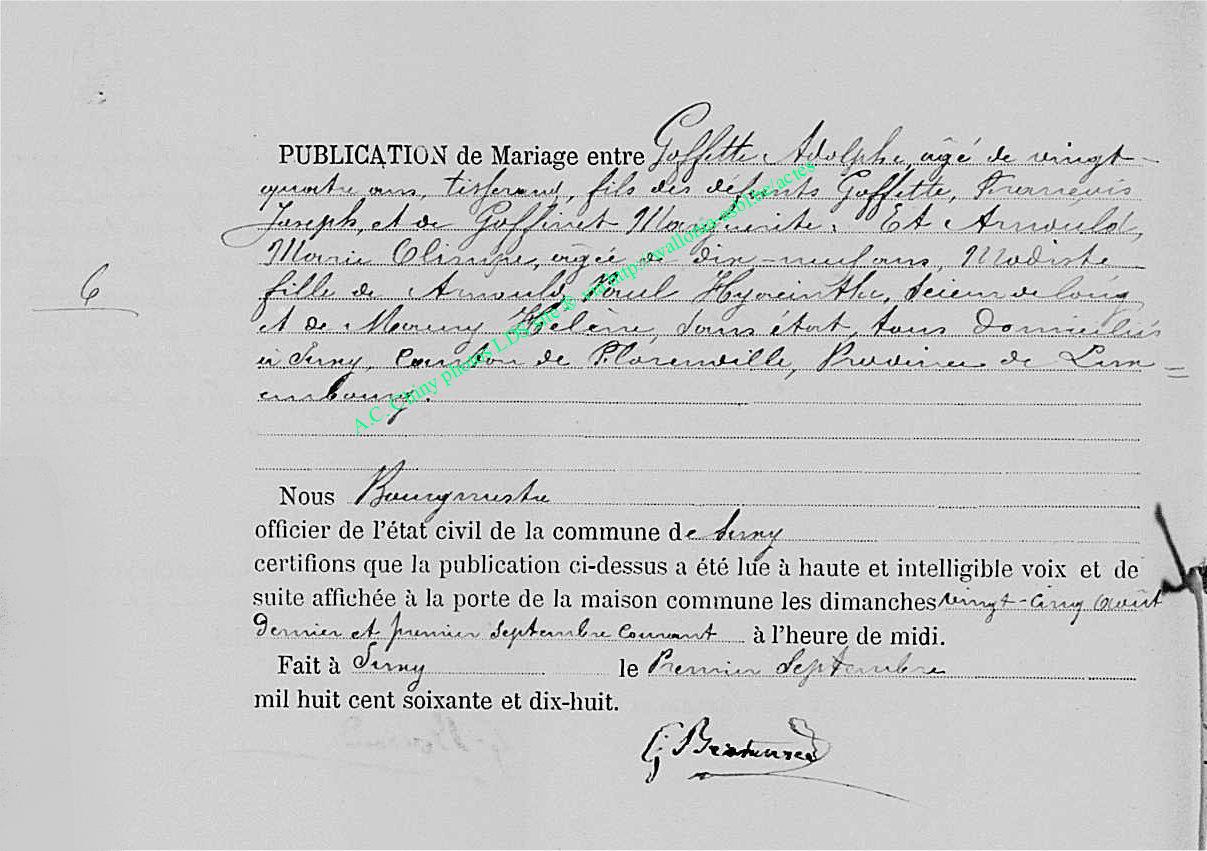 PUBLICATION de Mariage entre Goffette Adolphe, agé de vingt-
quatre ans, tisserand, fils des défunts Goffette, François
Joseph, et de Goffinet Marguerite. Et Arnould,
Marie Olimpe, agée de dix-neuf ans, Modiste
6
fille de Arnould, Paul Hyacinthe, Scieur de long
et de Mauny Hélène, sans état, tous domiciliés
à Suxy, Canton de Florenville, Province de Luxem=
embourg.
A.C. Chiny photos LDS site via http://wallonia-asbl.be/actes
Nous Bourgmestre
officier de l'état civil de la commune de Suxy
certifions que la publication ci-dessus a été lue à haute et intelligible voix et de
suite affichée à la porte de la maison commune les dimanches vingt-cinq août
dernier et premier septembre courant à l'heure de midi.
Fait à Suxy le Premier Septembre
mil huit cent soixante et dix-huit.